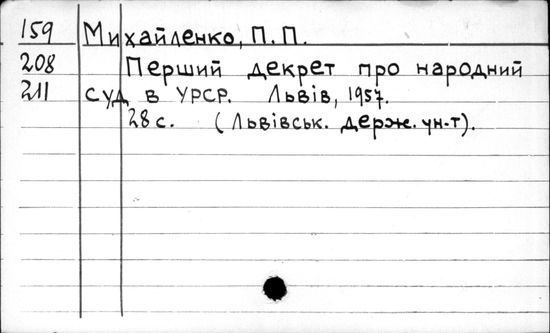 159 Михайленко, П.П.
208 Перший декрет про народний
211 суд в УРСР. Львів, 1957.
28 с. (Львівськ. держ. ун-т).